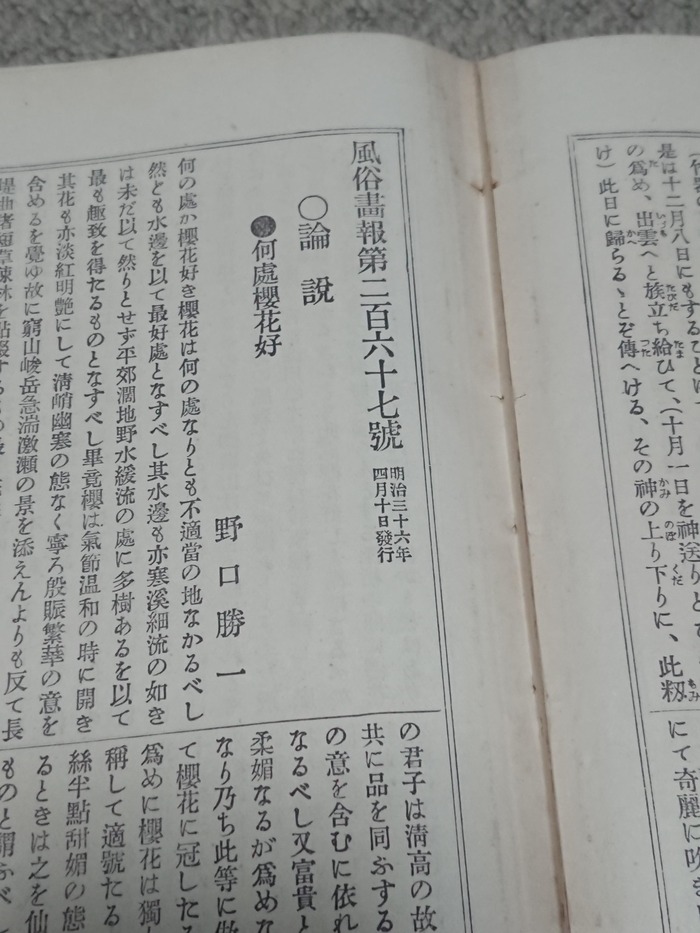 是は十二月八日にもするひとに
の爲め、出雲へと族立ち給ひて、(十月一日を神送りと
け)此日に歸らるゝとぞ傳へける、その神の上り下りに、此籾
にて奇麗に吹き
風俗畫報第二百六十七號
明治三十六年
四月十日發行
○論說
●何處櫻花好
野口勝一
何の處か櫻花好き櫻花は何の處なりとも不適當の地なかるべし
然とも水邊を以て最好處となすべし其水邊も亦寒溪細流の如き
は未だ以て然りとせず平郊濶地野水緩流の處に多樹あるを以て
最も趣致を得たるものとなすべし畢竟櫻は氣節温和の時に開き
其花も亦淡紅明艷にして淸峭幽寒の態なく寧ろ殷賑繁華の意を
含めるを覺ゆ故に窮山峻岳急湍激瀬の景を添えんよりも反て長
の君子は淸高の故
共に品を同ふする
の意を含むに依れ
なるべし又富貴と
柔媚なるが爲めな
なり乃ち此等に
て櫻花に冠した
爲めに櫻花は獨
稱して適號たる
絲半點甜媚の態
るときは之を仙
ものと謂ふべ